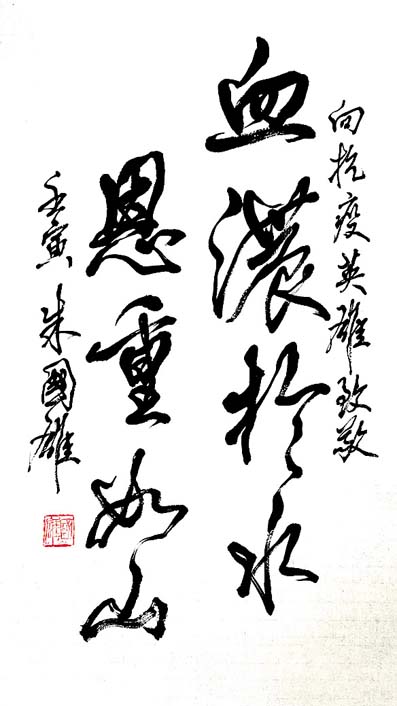 向抗疫英雄致敬
血濃於水
恩重如山
壬寅朱國雄